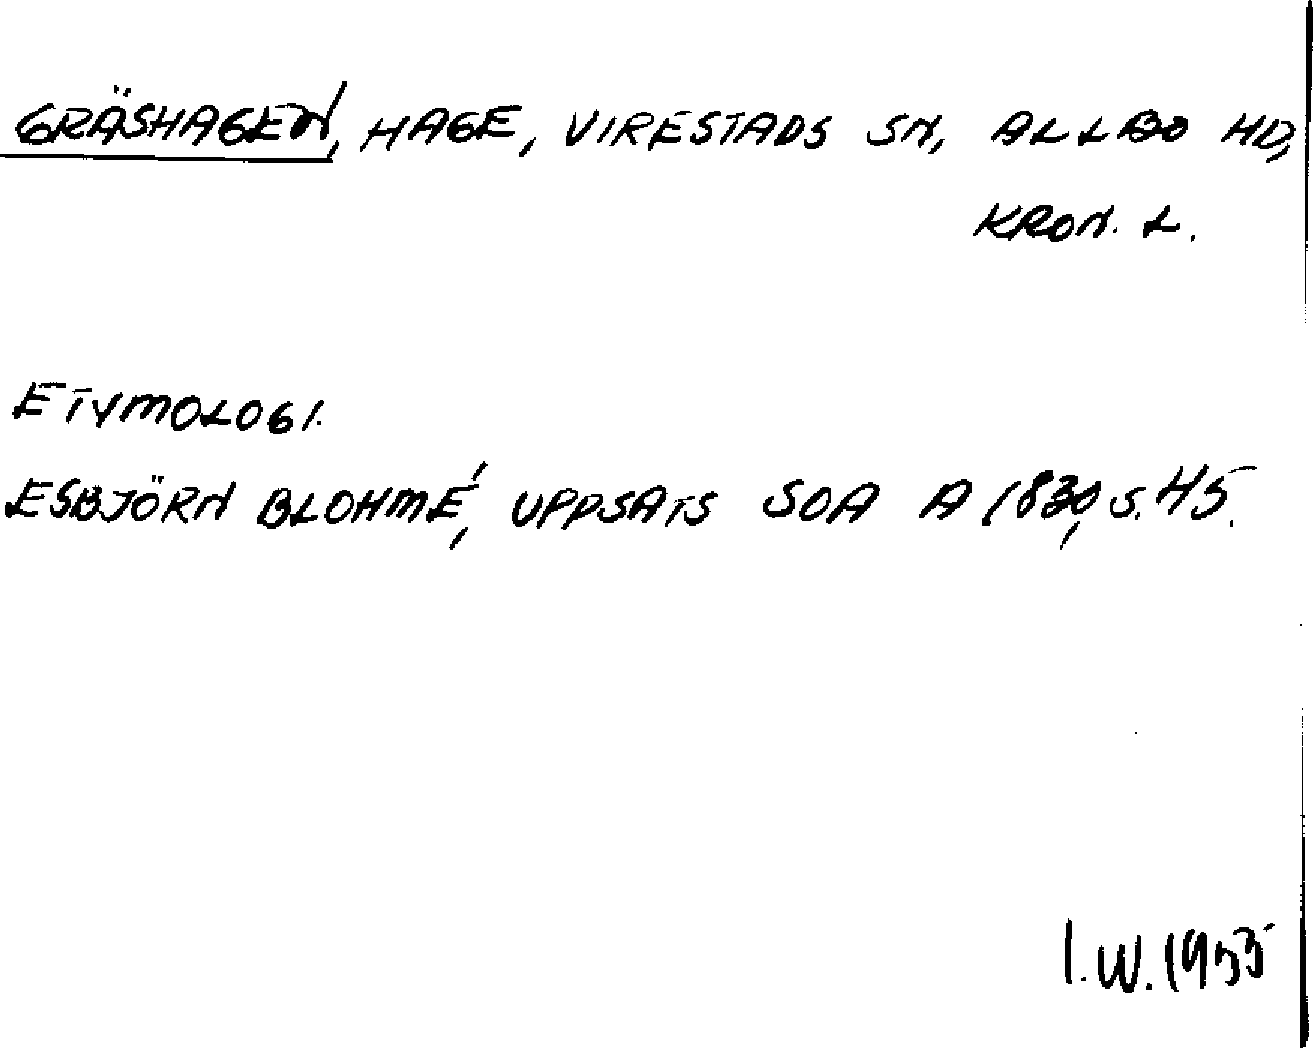 GRÄSHAGEN, HAGE, VIRESTADS SN, ALLBO HD,
KRON. L.
ETYMOLOGI.
ESBJÖRN BLOHMÉ, UPPSATS SOA A 1830, S. 45.
I.W. 1955